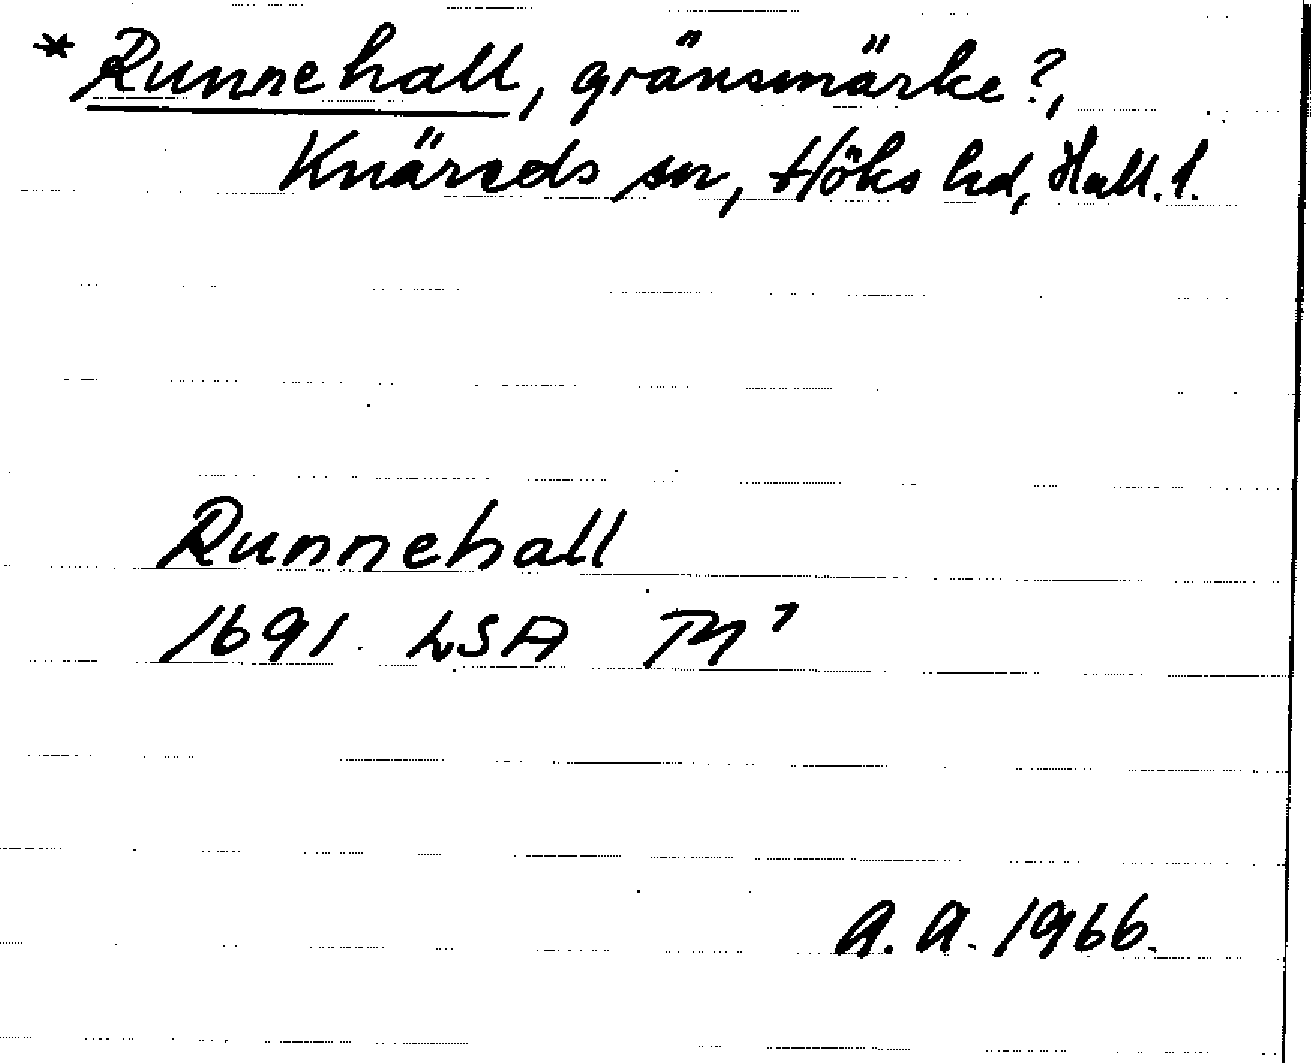 * Runnehall, gränsmärke?,
Knäreds sn, Höks hd, Hall. l.
Runnehall
1691 LSA M⁷
A.A. 1966.